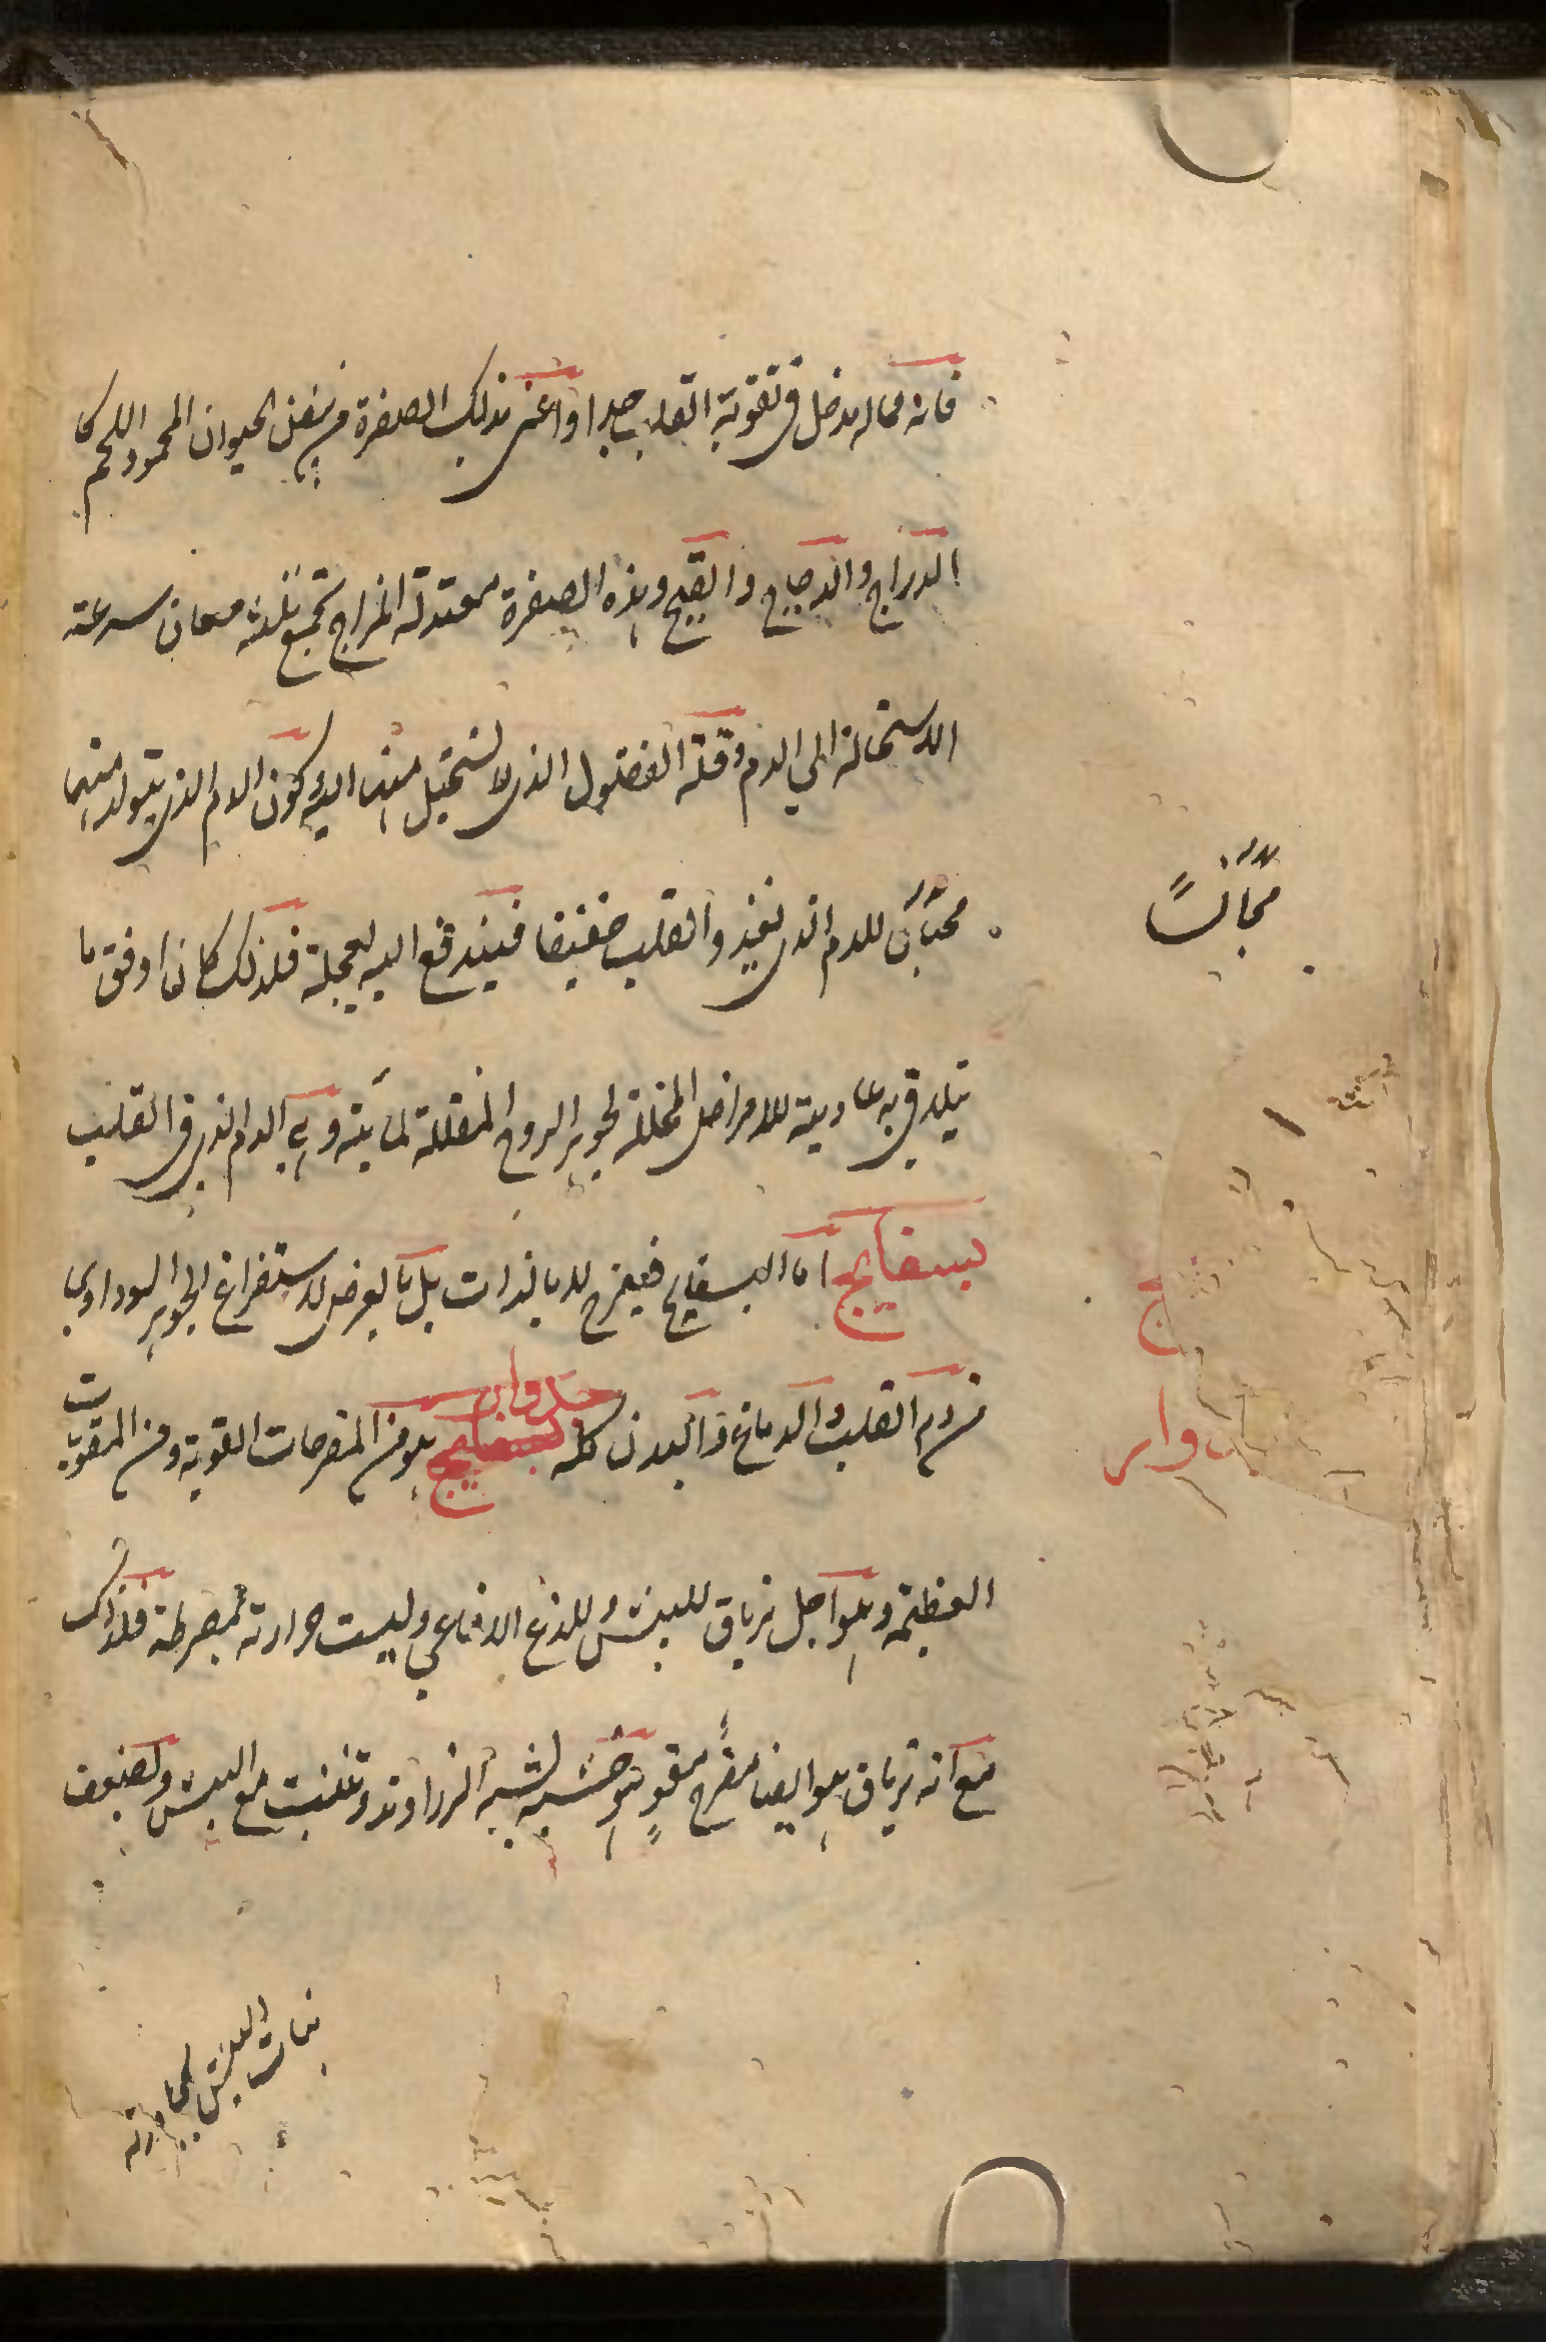 فانه مما له مدخل فى تقوية القلب جدا واعنى بذلك الصفرة من بيض الحيوان المحمود اللحم كا
الدراج والدجاج والقبج وهذه الصفرة معتدلة المزاج تجمع ثلثة معان سرعة
الاستحالة الي الدم وقلة الفضول الذى لا تستحيل منها اليه وكون الدم الذى يتولد منها
مجانسا للدم الذى يغذو القلب خفيفا فيندفع اليه بعجلة فلذلك كان اوفق ما
يتلافى به عادية الامراض المحللة لجوهر الروح المقللة لمايته وهي الدم الذى فى القلب
بسفايج اما البسفايج فيفرح لا بالذات بل بالعرض لاستفراغ الجوهر السوداوي
من دم القلب والدماغ والبدن كله بسفايج جدوار هو من المفرحات القوية ومن المقويات
العظيمة وهو اجل ترياق للبيش وللدغ الافاعي وليست حرارته بمفرطة فلذلك
مع انه ترياق هو ايضا مفرح مقو هو خشبة تشبه الزراوند وتنبت مع البيش ويضعف
نبات البيش بمجاورته
مجانسًا
ج
وار